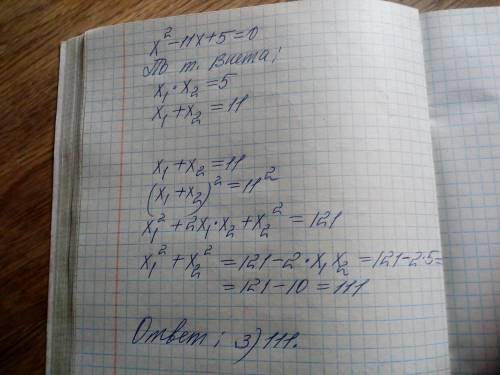 x² - 11x + 5 = 0
По т. Виета:
x₁ · x₂ = 5
x₁ + x₂ = 11
x₁ + x₂ = 11
(x₁ + x₂)² = 11²
x₁² + 2x₁·x₂ + x₂² = 121
x₁² + x₂² = 121 - 2·x₁x₂ = 121 - 2·5 =
= 121 - 10 = 111
Ответ: 3) 111.